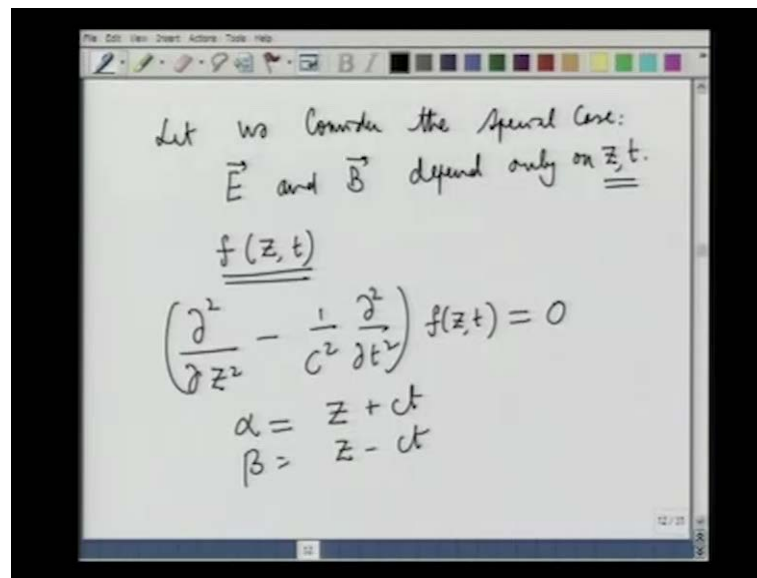 File Edit View Insert Actions Tools Help
B I
Let us Consider the special Case:
E⃗ and B⃗ depend only on z, t.
f(z, t)
(∂²/∂z² − 1/c² ∂²/∂t²) f(z,t) = 0
α = z + ct
β = z − ct
12